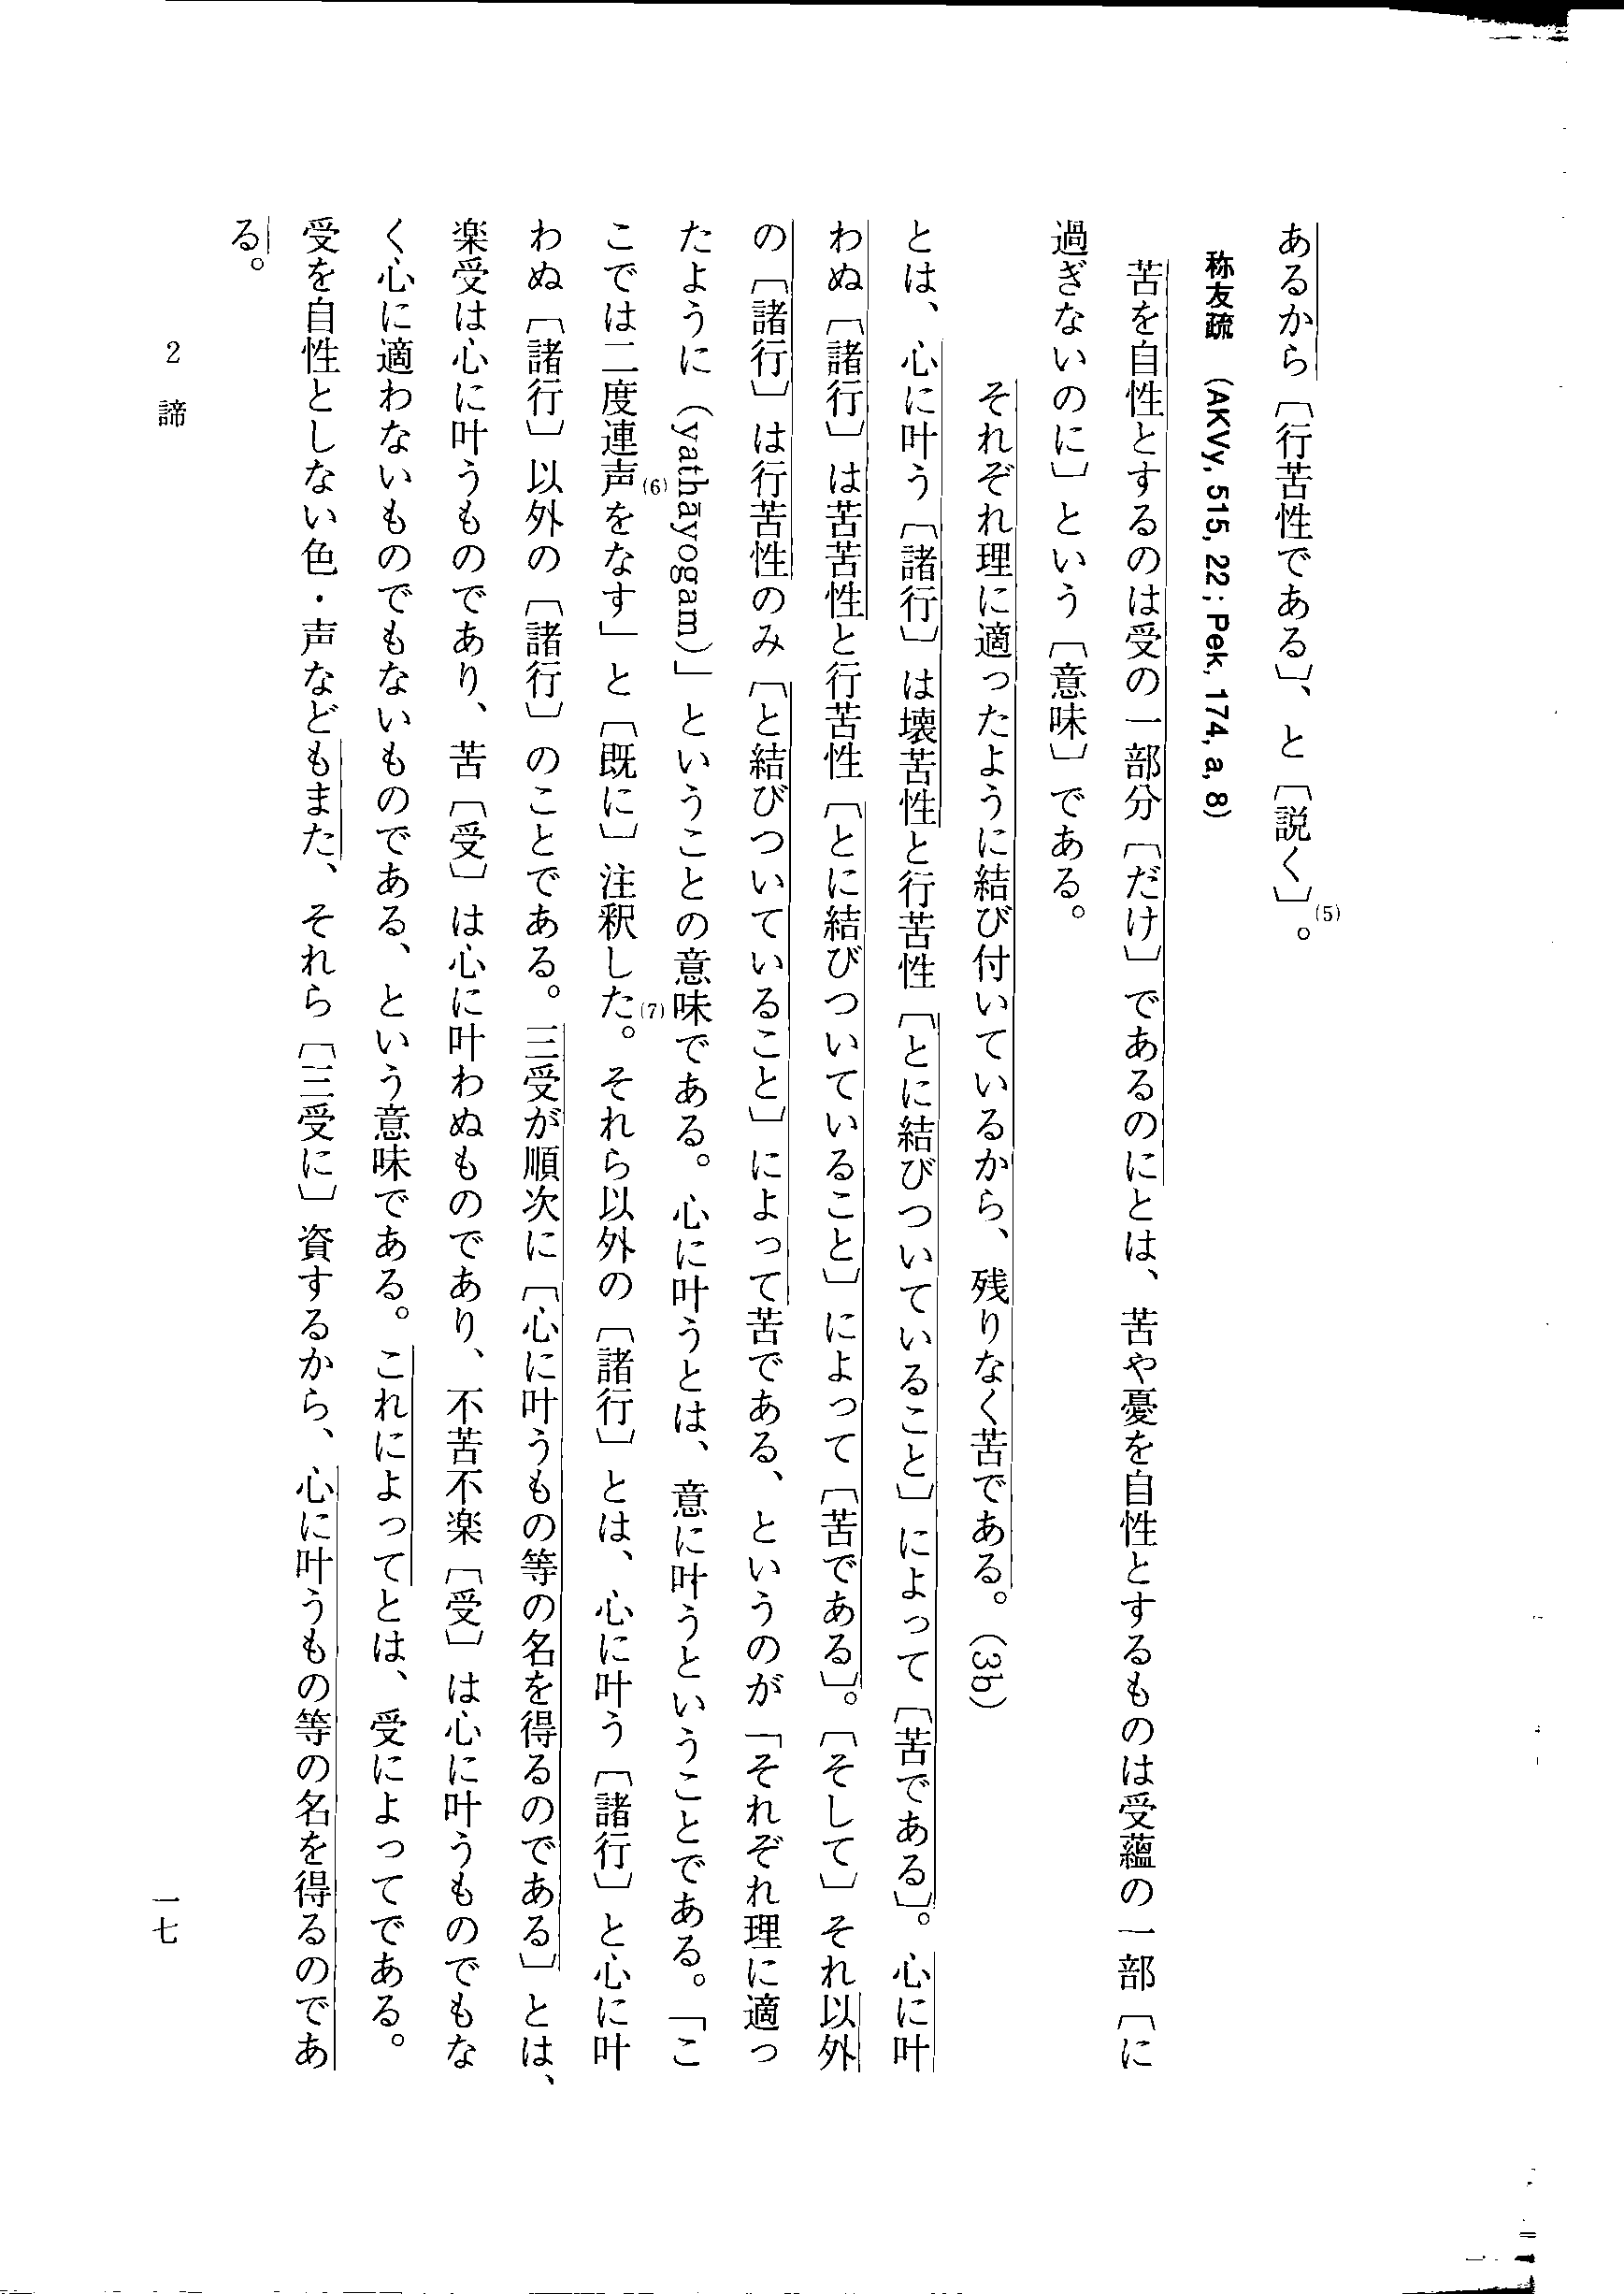 あるから〔行苦性である〕、と〔説く〕。(5)
称友疏 (AKVy, 515, 22; Pek, 174, a, 8)
苦を自性とするのは受の一部分〔だけ〕であるのにとは、苦や憂を自性とするものは受蘊の一部〔に
過ぎないのに〕という〔意味〕である。
それぞれ理に適ったように結び付いているから、残りなく苦である。(3b)
とは、心に叶う〔諸行〕は壊苦性と行苦性〔とに結びついていること〕によって〔苦である〕。心に叶
わぬ〔諸行〕は苦苦性と行苦性〔とに結びついていること〕によって〔苦である〕。〔そして〕それ以外
の〔諸行〕は行苦性のみ〔と結びついていること〕によって苦である、というのが「それぞれ理に適っ
たように (yathāyogam)」ということの意味である。心に叶うとは、意に叶うということである。「こ
こでは二度連声(6)をなす」と〔既に〕注釈した(7)。それら以外の〔諸行〕とは、心に叶う〔諸行〕と心に叶
わぬ〔諸行〕以外の〔諸行〕のことである。三受が順次に〔心に叶うもの等の名を得るのである〕とは、
楽受は心に叶うものであり、苦〔受〕は心に叶わぬものであり、不苦不楽〔受〕は心に叶うものでもな
く心に適わないものでもないものである、という意味である。これによってとは、受によってである。
受を自性としない色・声などもまた、それら〔三受に〕資するから、心に叶うもの等の名を得るのであ
る。
2 諦
一七